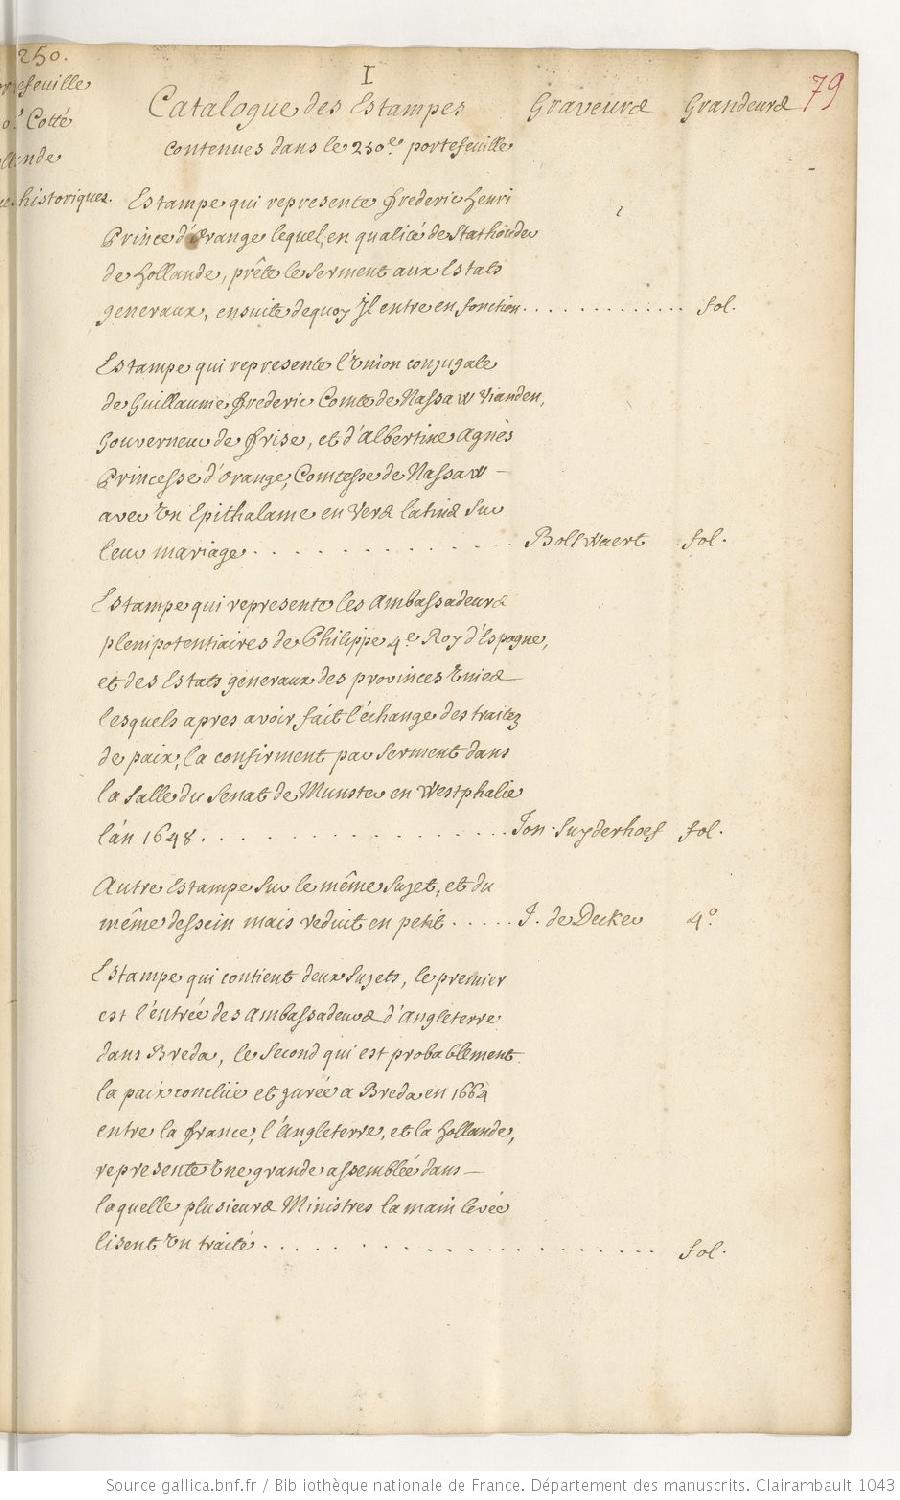 250.
I
79
Catalogue des Estampes Graveurs Grandeurs
Contenues dans le 250e. portefeuille
efeuille
Cotté
historiques.
Estampe qui represente Frederic Henri
Prince d'Orange lequel, en qualité de Stathoude
de Hollande, prête le Serment aux Estats
generaux, ensuite dequoy Il entre en fonction. . . . . . . . . . . . . fol.
Estampe qui represente l'Union conjugale
de Guillaume Frederic Comte de Nassaw Vianden,
Gouverneur de Frise, et d'Albertine Agnès
Princesse d'Orange, Comtesse de Nassaw —
avec Un Epithalame en Vers latins Sur
leur mariage . . . . . . . . . . . . Bolswaert fol.
Estampe qui represente les Ambassadeurs
plenipotentiaires de Philippe 4e Roy d'Espagne,
et des Estats generaux des provinces Unies
lesquels apres avoir fait l'échange des traitez
de paix, la confirment par Serment dans
la Salle du Senat de Munster en Westphalie
l'an 1648 . . . . . . . . . . . . . . Jon. Suyderhoef fol.
Autre Estampe Sur le même Sujet, et du
même dessein mais reduit en petit . . . . . J. de Decker 4o.
Estampe qui contient deux Sujets, le premier
est l'entrée des Ambassadeurs d'Angleterre
dans Breda, le Second qui est probablement
la paix conclüe et jurée a Breda en 1664
entre la France, l'Angleterre, et la Hollande,
represente Une grande assemblée dans —
laquelle plusieurs Ministres la main levée
lisent Un traité . . . . . . . . . . . . . . . . . . . . . fol.
Source gallica.bnf.fr / Bibliothèque nationale de France. Département des manuscrits. Clairambault 1043